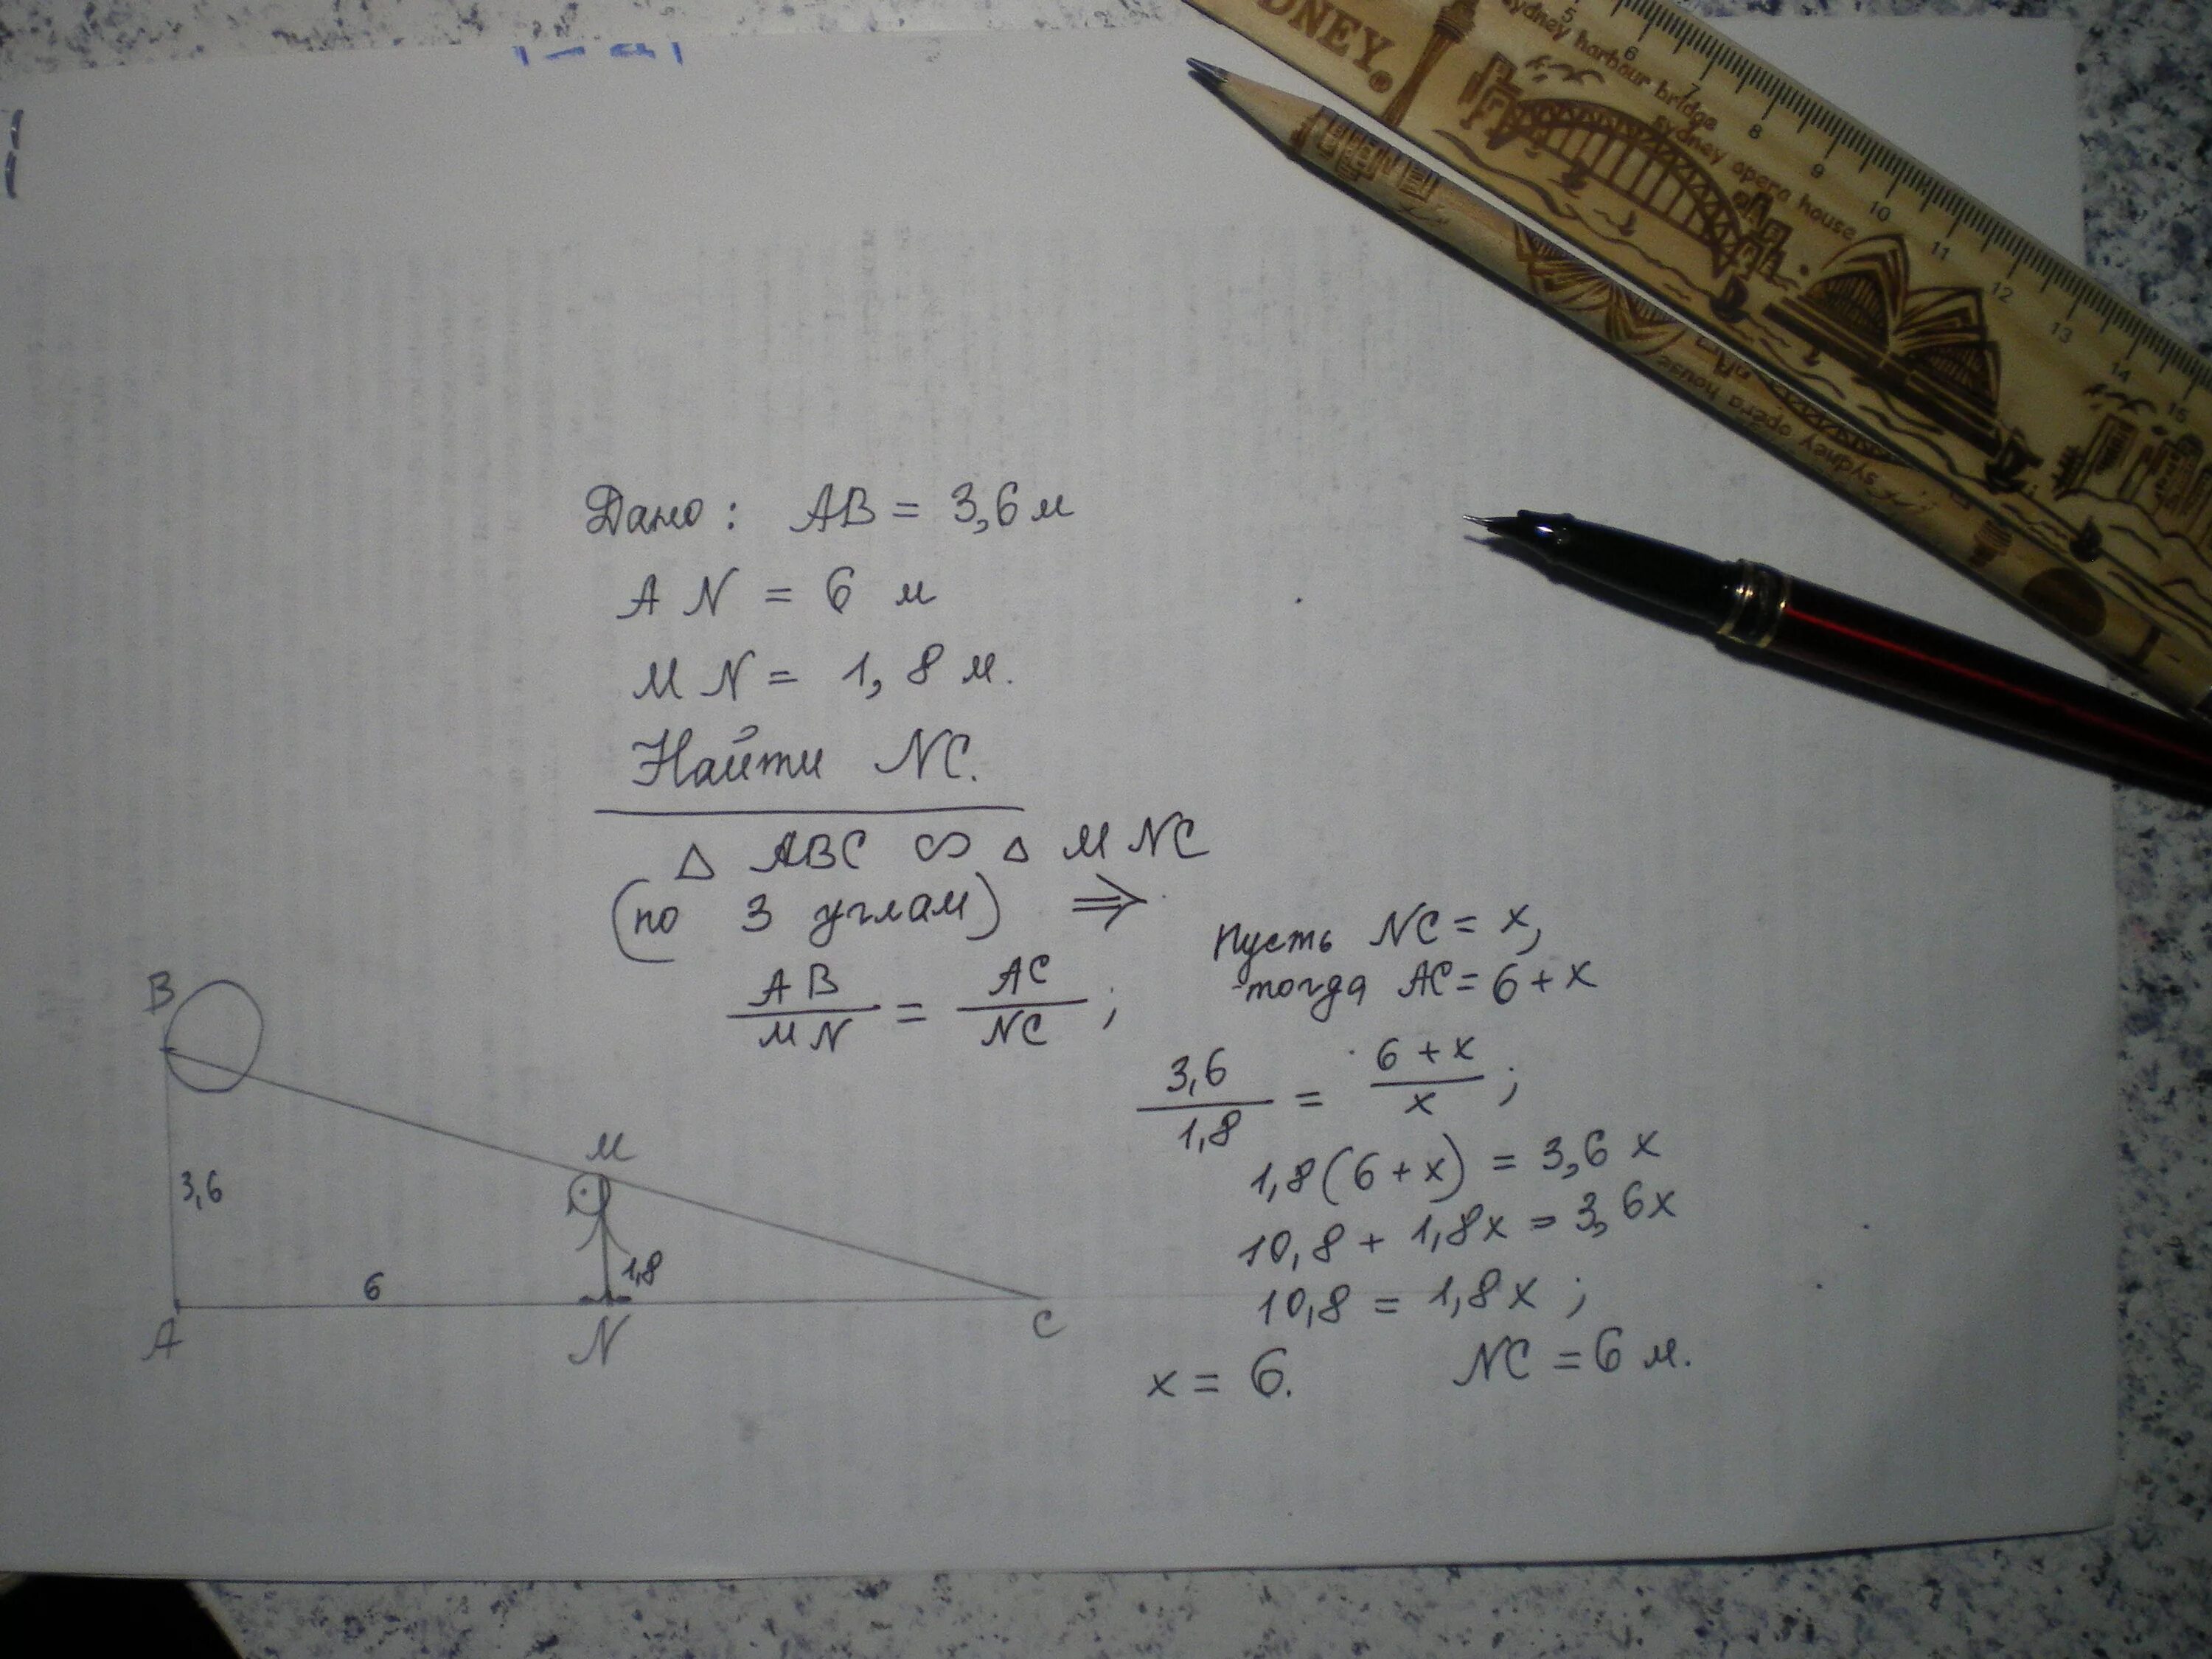 DNEY®
sydney harbour bridge
sydney opera house
5 6 7 8 9 10 11 12 13 14 15
sydney opera house
Дано: AB = 3,6 м
AN = 6 м
MN = 1,8 м.
Найти NC.
△ ABC ∽ △ MNC
(по 3 углам) ⇒
AB/MN = AC/NC ;
Пусть NC = x,
тогда AC = 6 + x
3,6/1,8 = 6 + x/x ;
1,8(6 + x) = 3,6 x
10,8 + 1,8x = 3,6x
10,8 = 1,8x ;
x = 6. NC = 6 м.
B
M
3,6
1,8
6
A
N
C